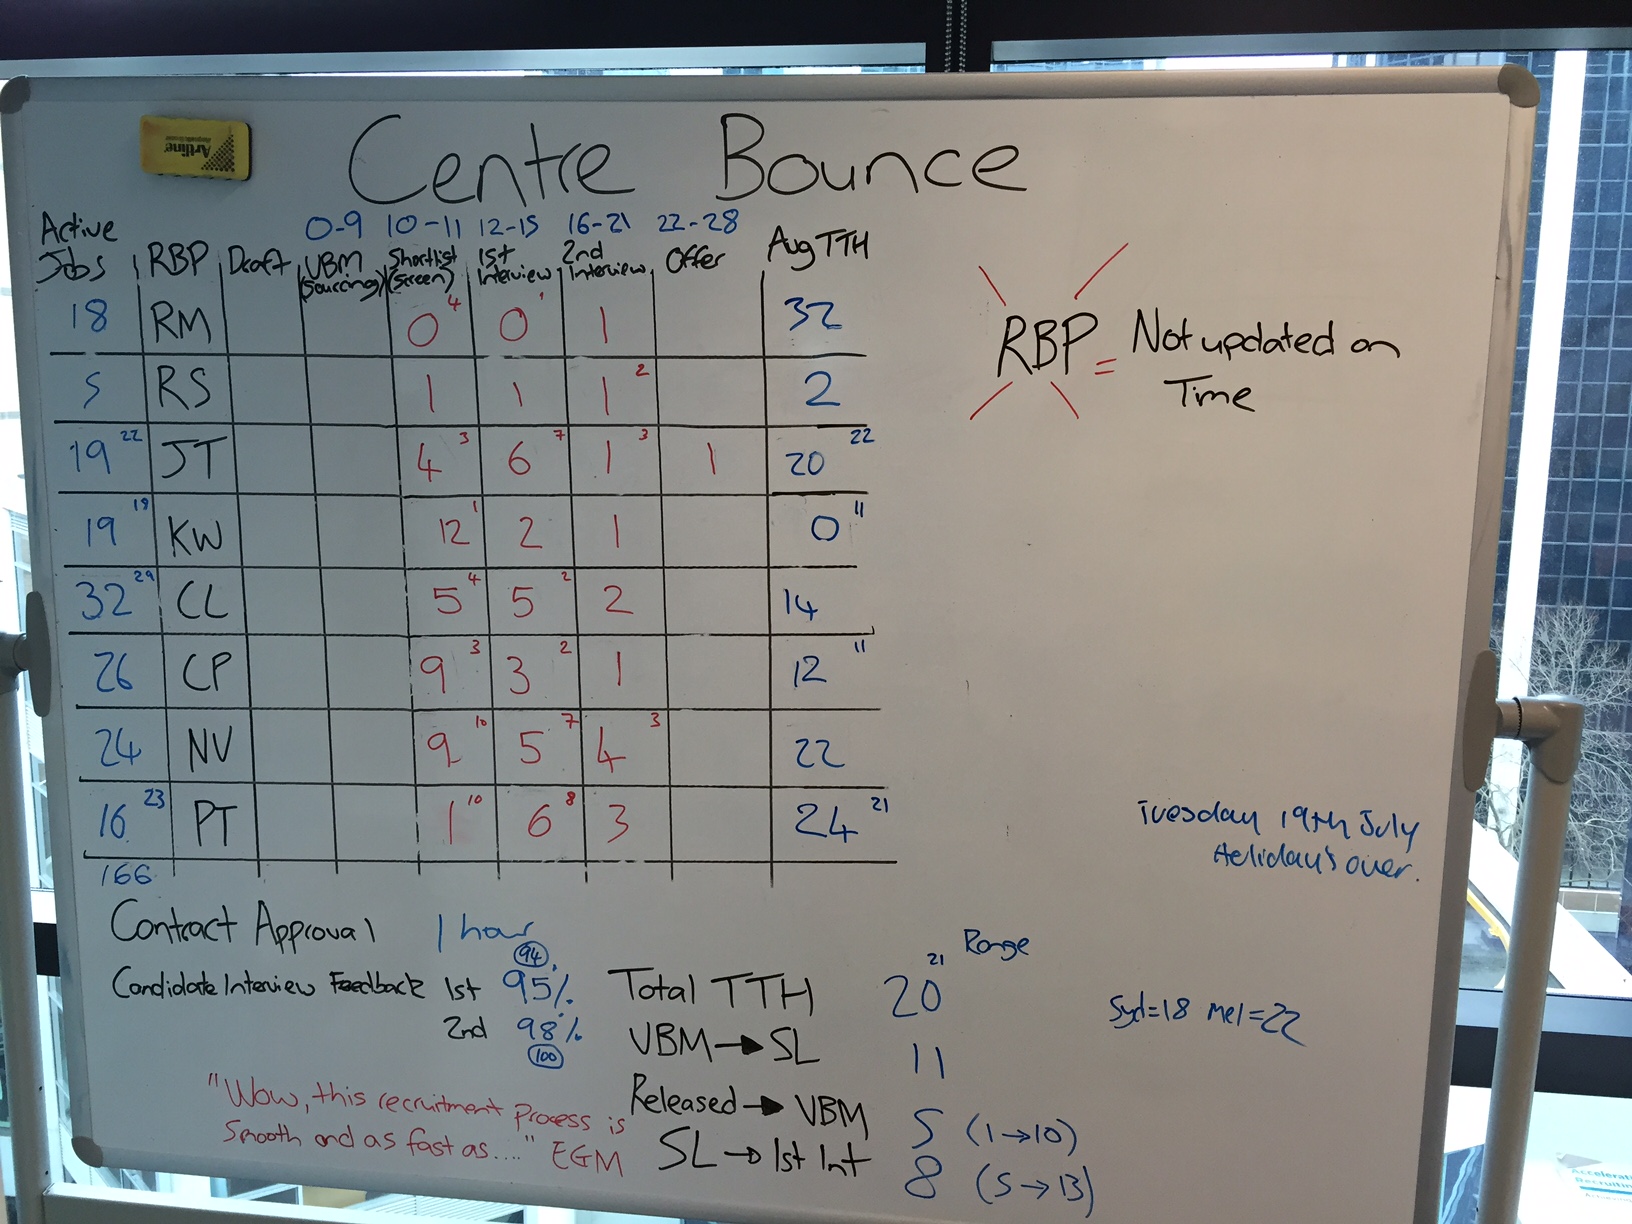 Artline
Centre Bounce
0-9 10-11 12-15 16-21 22-28
Active Jobs RBP Draft VBM (Sourcing) Shortlist (Screen) 1st Interview 2nd Interview Offer Avg TTH
18 RM 0 4 0 1 1 32
5 RS 1 1 1 2 2
19 22 JT 4 3 6 7 1 3 1 20 22
19 19 KW 12 1 2 1 0 11
32 29 CL 5 4 5 2 2 14
26 CP 9 3 3 2 1 12 11
24 NV 9 10 5 7 4 3 22
16 23 PT 1 10 6 8 3 24 21
166
RBP = Not updated on
Time
Tuesday 19th July
Holiday's over.
Contract Approval 1 hour
Candidate Interview Feedback 1st 95% 94
2nd 98% 100
"Wow, this recruitment process is
smooth and as fast as...." EGM
Range
Total TTH 20 21 Syd=18 Mel=22
VBM → SL 11
Released → VBM 5 (1→10)
SL → 1st Int 8 (5→13)